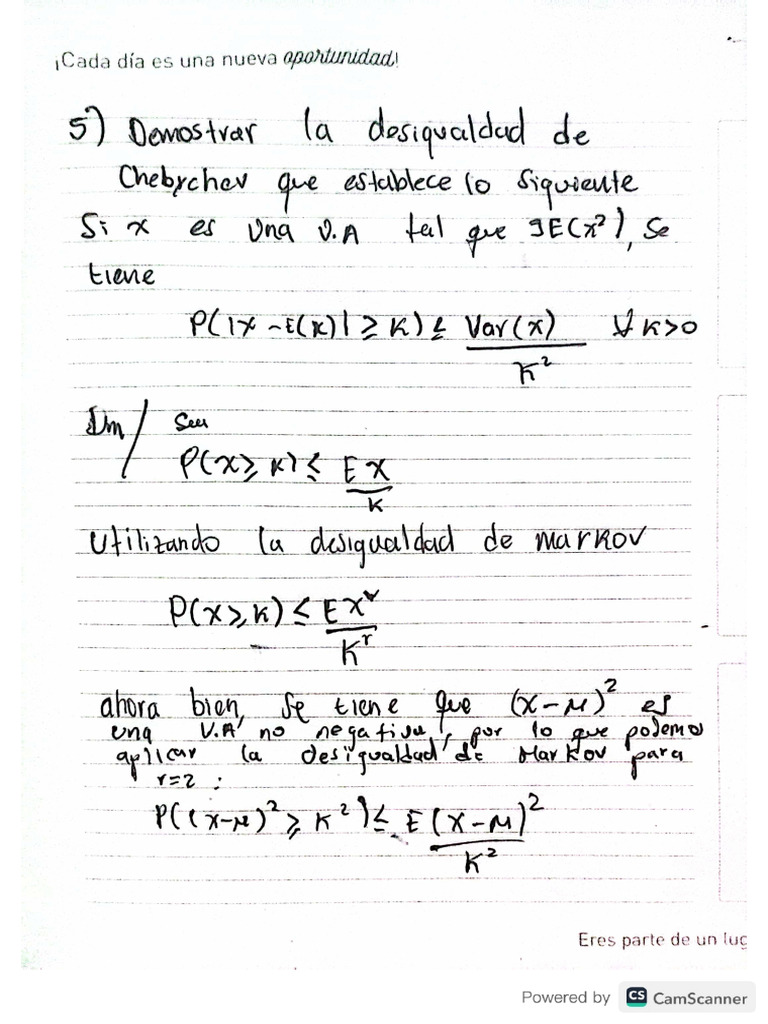 ¡Cada día es una nueva oportunidad!
5) Demostrar la desigualdad de
Chebychev que establece lo siguiente
Si x es una V.A tal que ∃E(x²), se
tiene
P(|x - E(x)| ≥ K) ≤ Var(x)/K² ∀ K>0
Dm/ Sea
P(x ≥ K) ≤ EX/K
Utilizando la desigualdad de Markov
P(x ≥ K) ≤ EX^r/K^r
ahora bien, se tiene que (x-μ)² es
una V.A, no negativa, por lo que podemos
aplicar la desigualdad de Markov para
r=2 :
P((x-μ)² ≥ K²) ≤ E(x-μ)²/K²
Eres parte de un lug
Powered by CS CamScanner